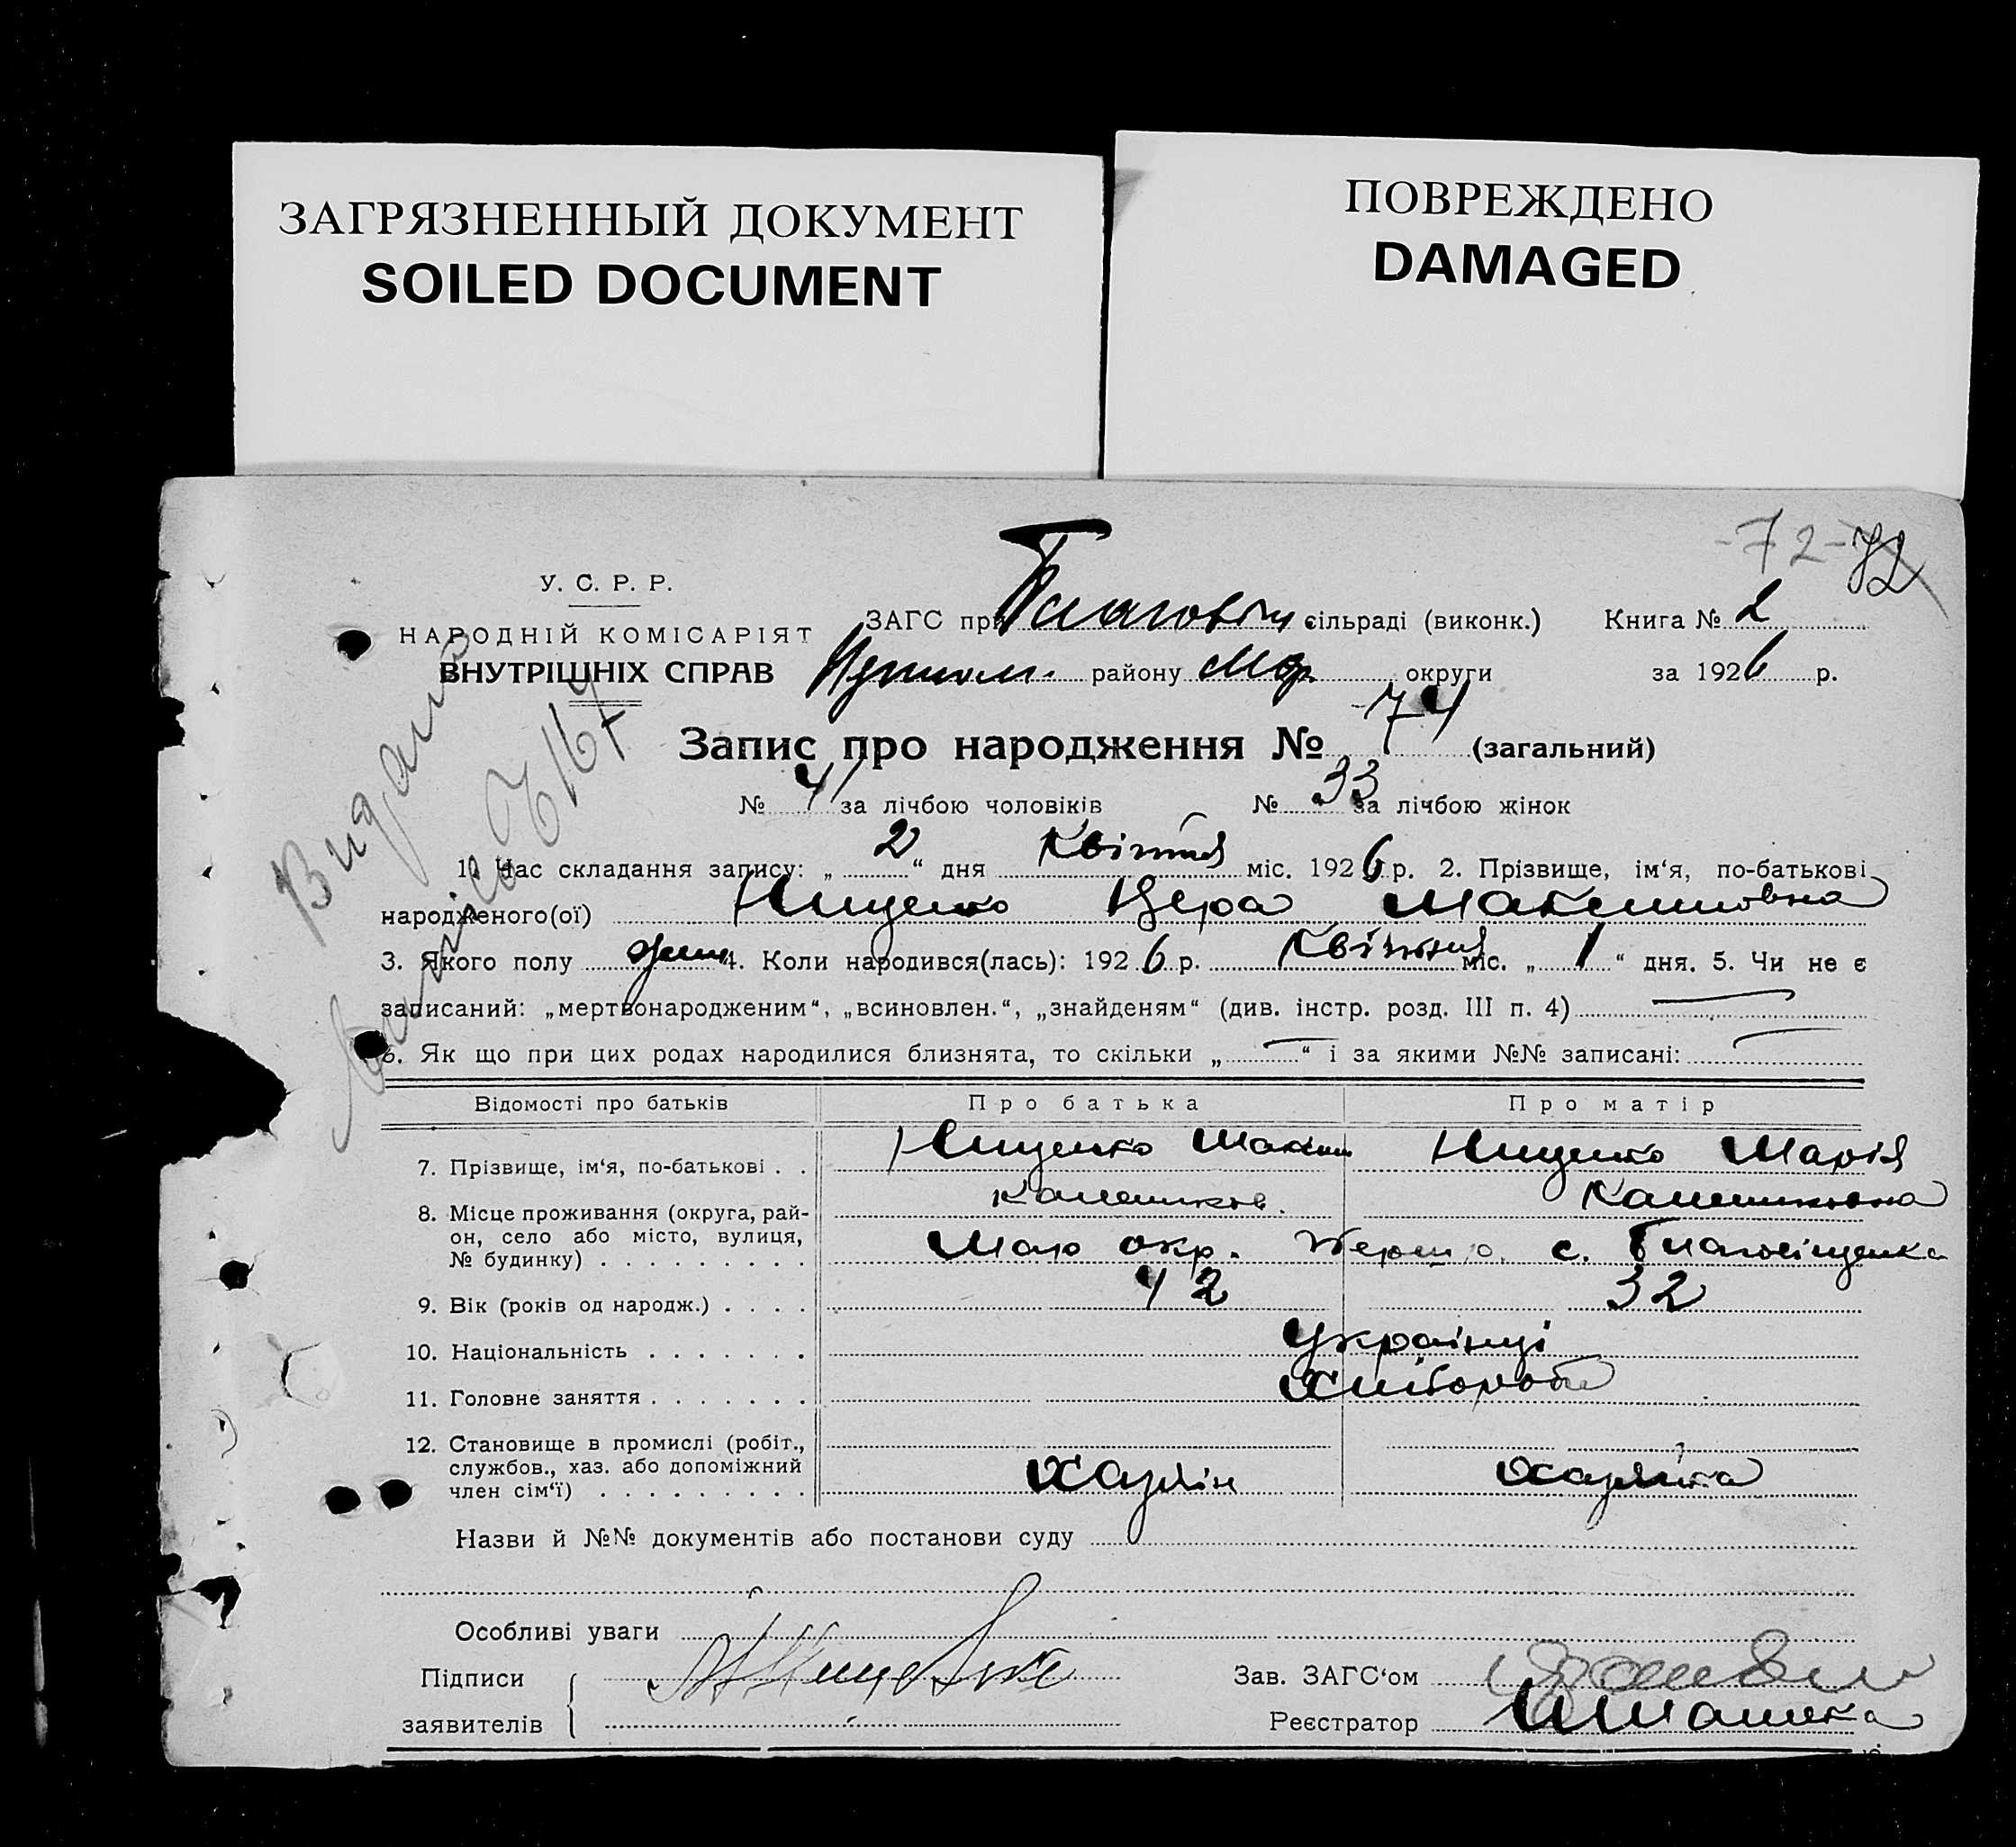 ЗАГРЯЗНЕННЫЙ ДОКУМЕНТ
SOILED DOCUMENT
ПОВРЕЖДЕНО
DAMAGED
-72- 72
У. С. Р. Р.
НАРОДНІЙ КОМІСАРІЯТ
ВНУТРІШНІХ СПРАВ
ЗАГС при сільраді (виконк.) Книга № 2
району округи за 1926 р.
Запис про народження № 74 (загальний)
№ 41 за лічбою чоловіків № 33 за лічбою жінок
1. Час складання запису: „2“ дня Квітня міс. 1926 р. 2. Прізвище, ім‘я, по-батькові
народженого(ої) Нищенко Вера Максимовна
3. Якого полу жин 4. Коли народився(лась): 1926 р. Квітня міс. „1“ дня. 5. Чи не є
записаний: „мертвонародженим“, „всиновлен.“, „знайденям“ (див. інстр. розд. III п. 4)
6. Як що при цих родах народилися близнята, то скільки „—“ і за якими №№ записані:
Відомості про батьків Про батька Про матір
7. Прізвище, ім‘я, по-батькові . . Нищенко Максим Нищенко Марія
8. Місце проживання (округа, рай-
он, село або місто, вулиця,
№ будинку) . . . . . . . . . Мар окр. с. Благовіщенка
9. Вік (років од народж.) . . . . 42 32
10. Національність . . . . . . . Українці
11. Головне заняття . . . . . . . Хлібороби
12. Становище в промислі (робіт.,
службов., хаз. або допоміжний
член сім‘ї) . . . . . . . . . Хазяін хазяйка
Назви й №№ документів або постанови суду
Особливі уваги
Підписи
заявителів
Зав. ЗАГС‘ом
Реєстратор
Видані